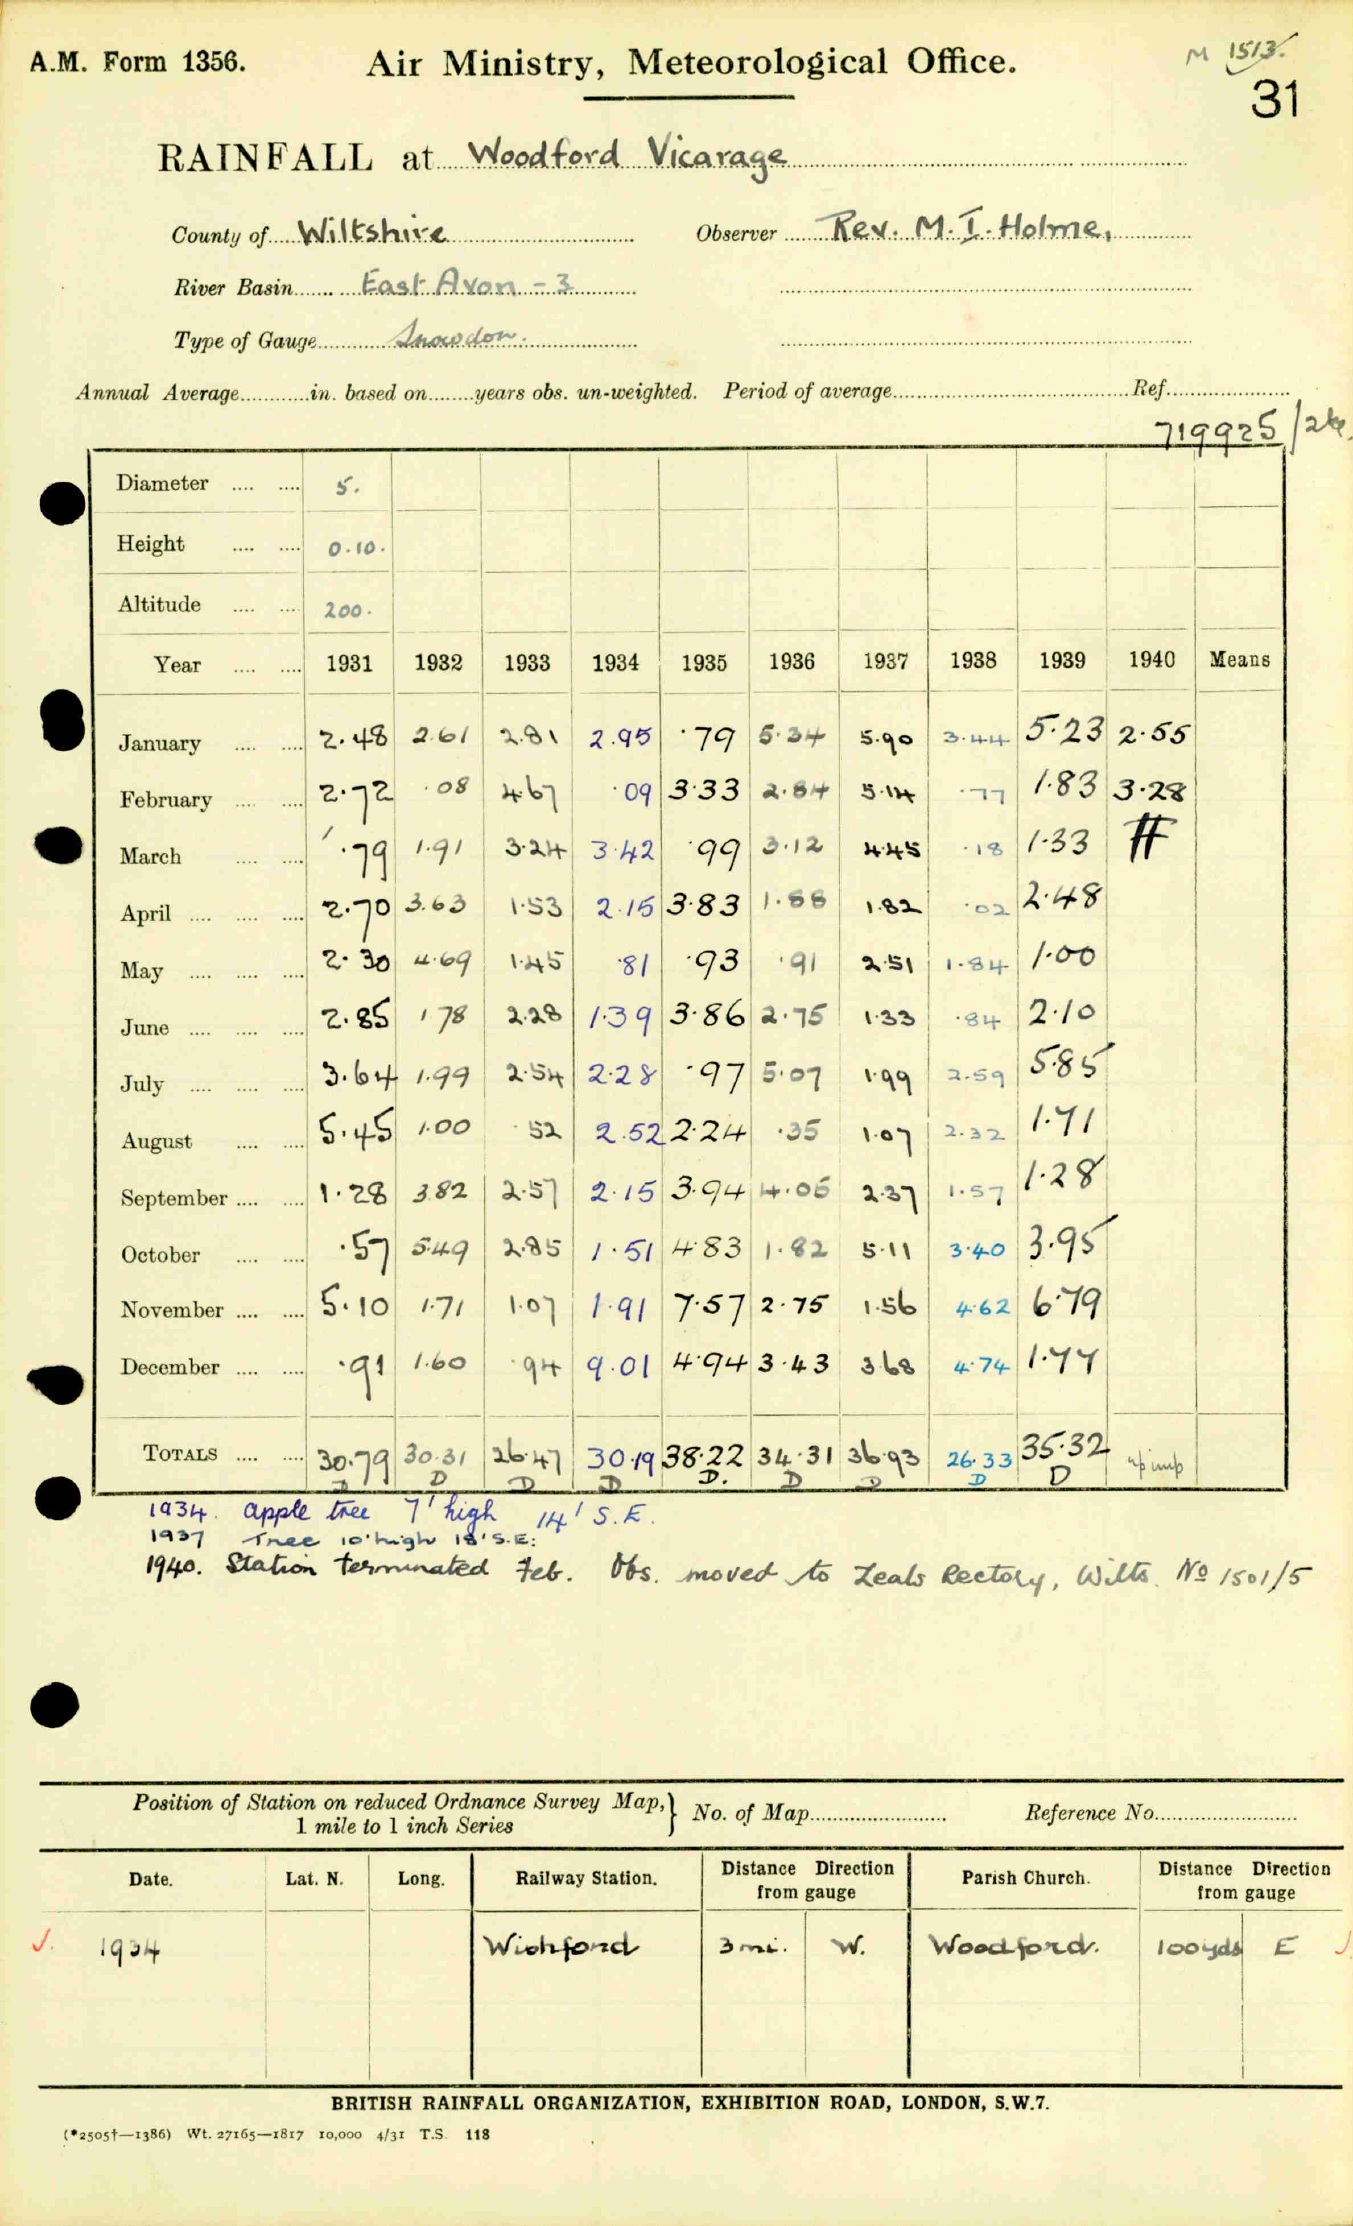 M 1513.
A.M. Form 1356. Air Ministry, Meteorological Office.
31
RAINFALL at Woodford Vicarage
County of Wiltshire Observer Rev. M.I. Holme,
River Basin East Avon - 3
Type of Gauge Snowdon.
Annual Average in. based on years obs. un-weighted. Period of average Ref.
719925/2
Diameter 5.
Height 0.10.
Altitude 200.
Year 1931 1932 1933 1934 1935 1936 1937 1938 1939 1940 Means
January 2.48 2.61 2.81 2.95 .79 5.34 5.90 3.44 5.23 2.55
February 2.72 .08 4.67 .09 3.33 2.84 5.14 .77 1.83 3.28
March .79 1.91 3.24 3.42 .99 3.12 4.45 .18 1.33 #
April 2.70 3.63 1.53 2.15 3.83 1.88 1.82 .02 2.48
May 2.30 4.69 1.45 .81 .93 .91 2.51 1.84 1.00
June 2.85 1.78 2.28 1.39 3.86 2.75 1.33 .84 2.10
July 3.64 1.99 2.54 2.28 .97 5.07 1.99 2.59 5.85
August 5.45 1.00 .52 2.52 2.24 .35 1.07 2.32 1.71
September 1.28 3.82 2.57 2.15 3.94 4.05 2.37 1.57 1.28
October .57 5.49 2.85 1.51 4.83 1.82 5.11 3.40 3.95
November 5.10 1.71 1.07 1.91 7.57 2.75 1.56 4.62 6.79
December .91 1.60 .94 9.01 4.94 3.43 3.68 4.74 1.77
TOTALS 30.79 30.31 26.47 30.19 38.22 34.31 36.93 26.33 35.32
D D D D D. D D D D
1934. apple tree 7' high 14' S.E.
1937 Tree 10' high 18' S.E.
1940. Station terminated Feb. Obs. moved to Zeals Rectory, Wilts. No 1501/5
Position of Station on reduced Ordnance Survey Map, 1 mile to 1 inch Series } No. of Map Reference No.
Date. Lat. N. Long. Railway Station. Distance Direction from gauge Parish Church. Distance Direction from gauge
1934 Wishford 3 mi. W. Woodford. 100 yds E
BRITISH RAINFALL ORGANIZATION, EXHIBITION ROAD, LONDON, S.W.7.
(*2505†—1386) Wt. 27165—1817 10,000 4/31 T.S. 118